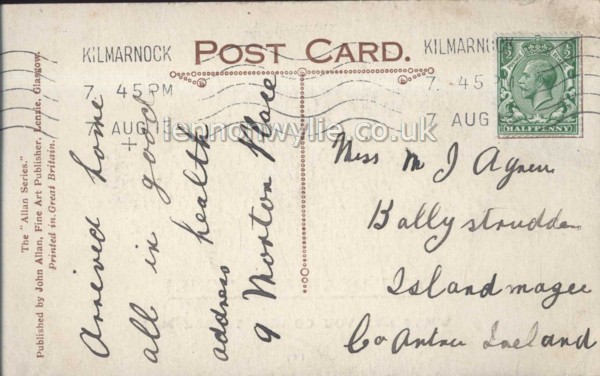 POST CARD.
KILMARNOCK
7. 45 PM
7 AUG 15
+
KILMARNOCK
7 - 45
7 AUG
HALFPENNY
lennonwylie.co.uk
The "Allan Series."
Published by John Allan, Fine Art Publisher, Lenzie, Glasgow.
Printed in Great Britain.
Arrived home
all in good
health
address
9 Morton Place
Miss M J Agnew
Ballystrudden
Islandmagee
Co Antrim Ireland